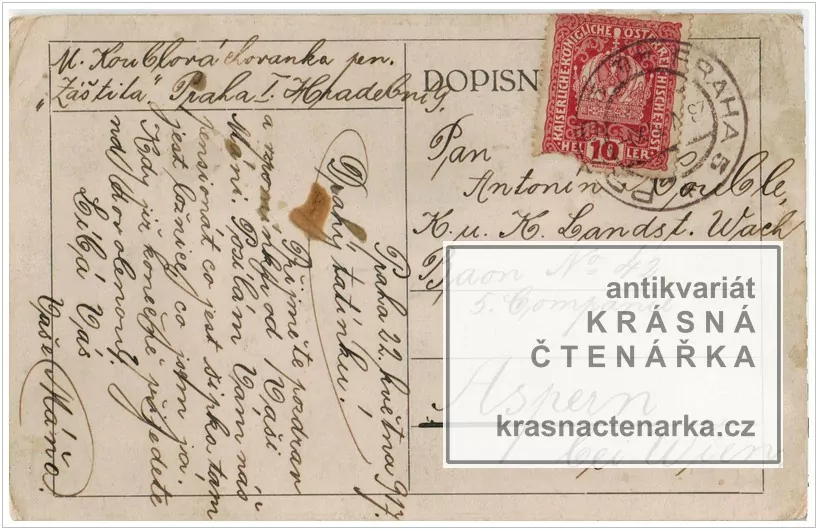 M. Koublová chovanka pen.
„Záštita" Praha I. Hradební 9.
DOPISN
KAISERLICHE KÖNIGLICHE ÖSTERREICHISCHE POST
10
HELLER
PRAHA 5
Pan
Antonín Kouble,
K. u. K. Landst. Wach
Baon No 42
5. Compagnie
Aspern
bei Wien
Praha 22 května 917.
Drahý tatínku!
Přijměte pozdrav
a vzpomínku od Vaší
Máni. Posílám Vám náš
pensionát co jest šipka tam
jest ložnice, co jsem já.
Kdy již konečně přijedete
na dovolenou?
Líbá Vás
Vaše Máňa.
antikvariát
KRÁSNÁ
ČTENÁŘKA
krasnactenarka.cz